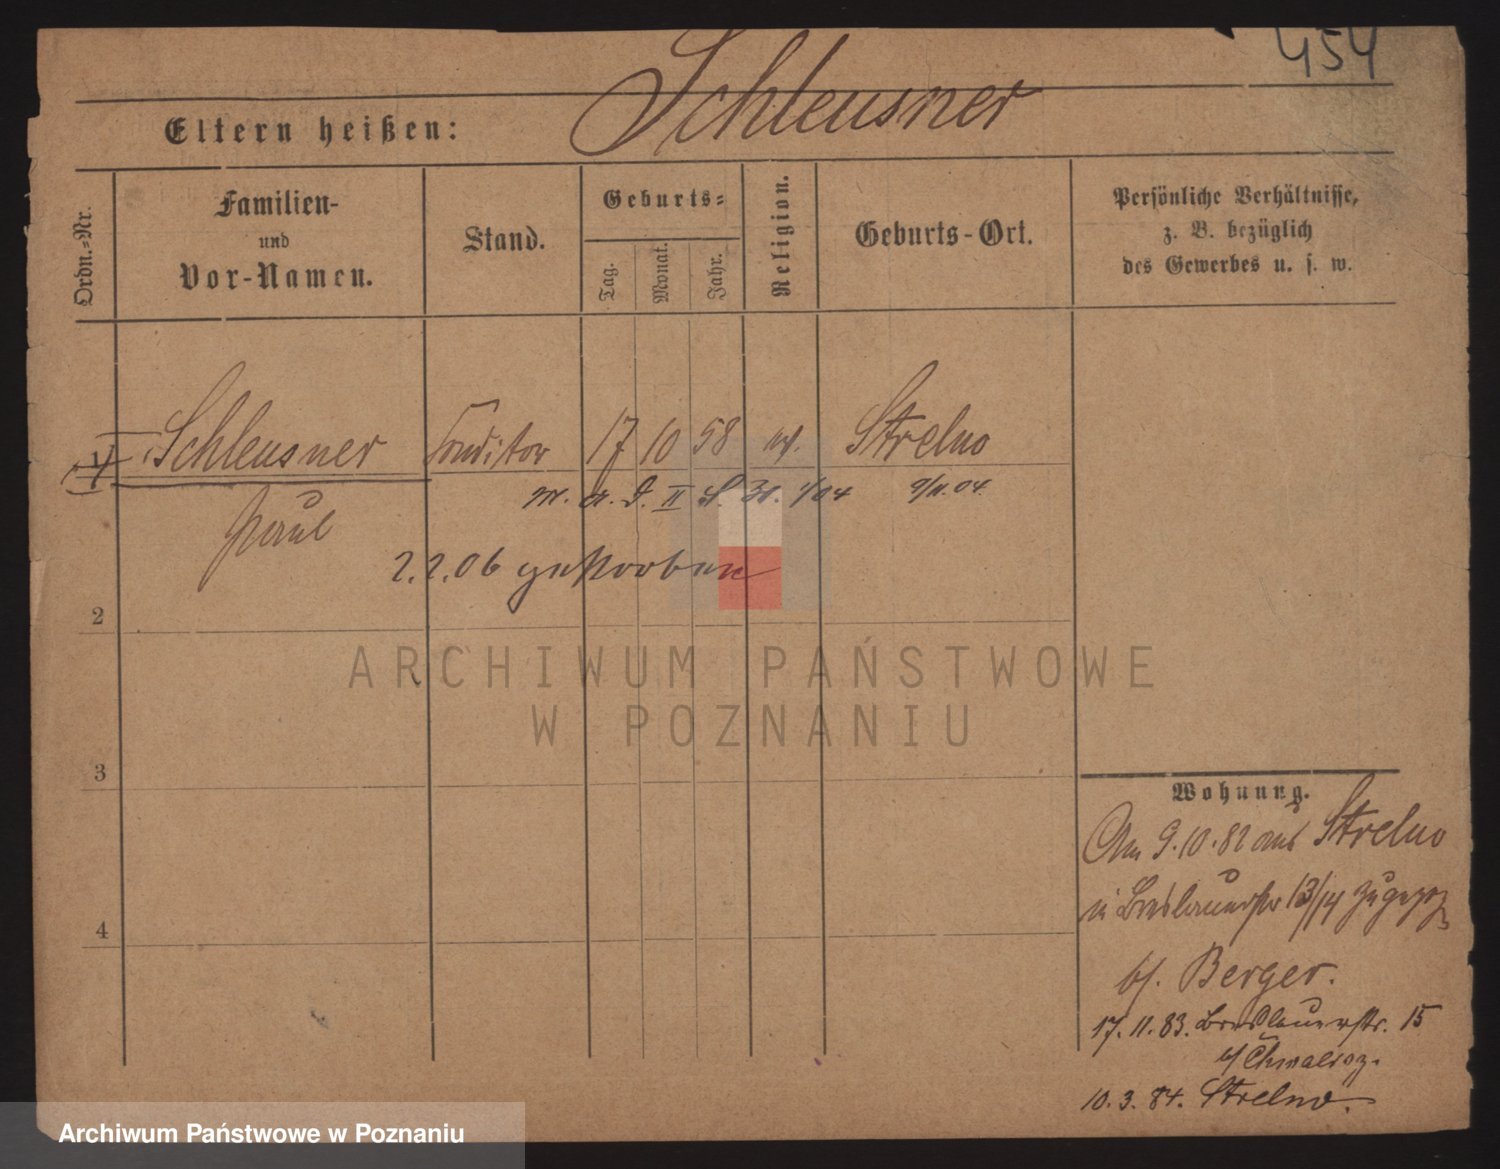 454
Schleusner
Eltern heißen:
Ordn.=Nr.
Familien-
und
Vor-Namen.
Stand.
Geburts=
Tag.
Monat.
Jahr.
Religion.
Geburts-Ort.
Persönliche Verhältnisse,
z. B. bezüglich
des Gewerbes u. s. w.
1 Schleusner Conditor 17 10 58 Strelno
Paul
31. 1/04 9/11.04.
2.2.06 gestorben
2
3
4
Wohnung.
Am 9.10.82 aus Strelno
in Breslauerstr 13/14 zugezog
b/. Berger.
17.11.83. Breslauerstr. 15
b/ Chwalisz.
10.3.84. Strelno.
ARCHIWUM PAŃSTWOWE
W POZNANIU
Archiwum Państwowe w Poznaniu